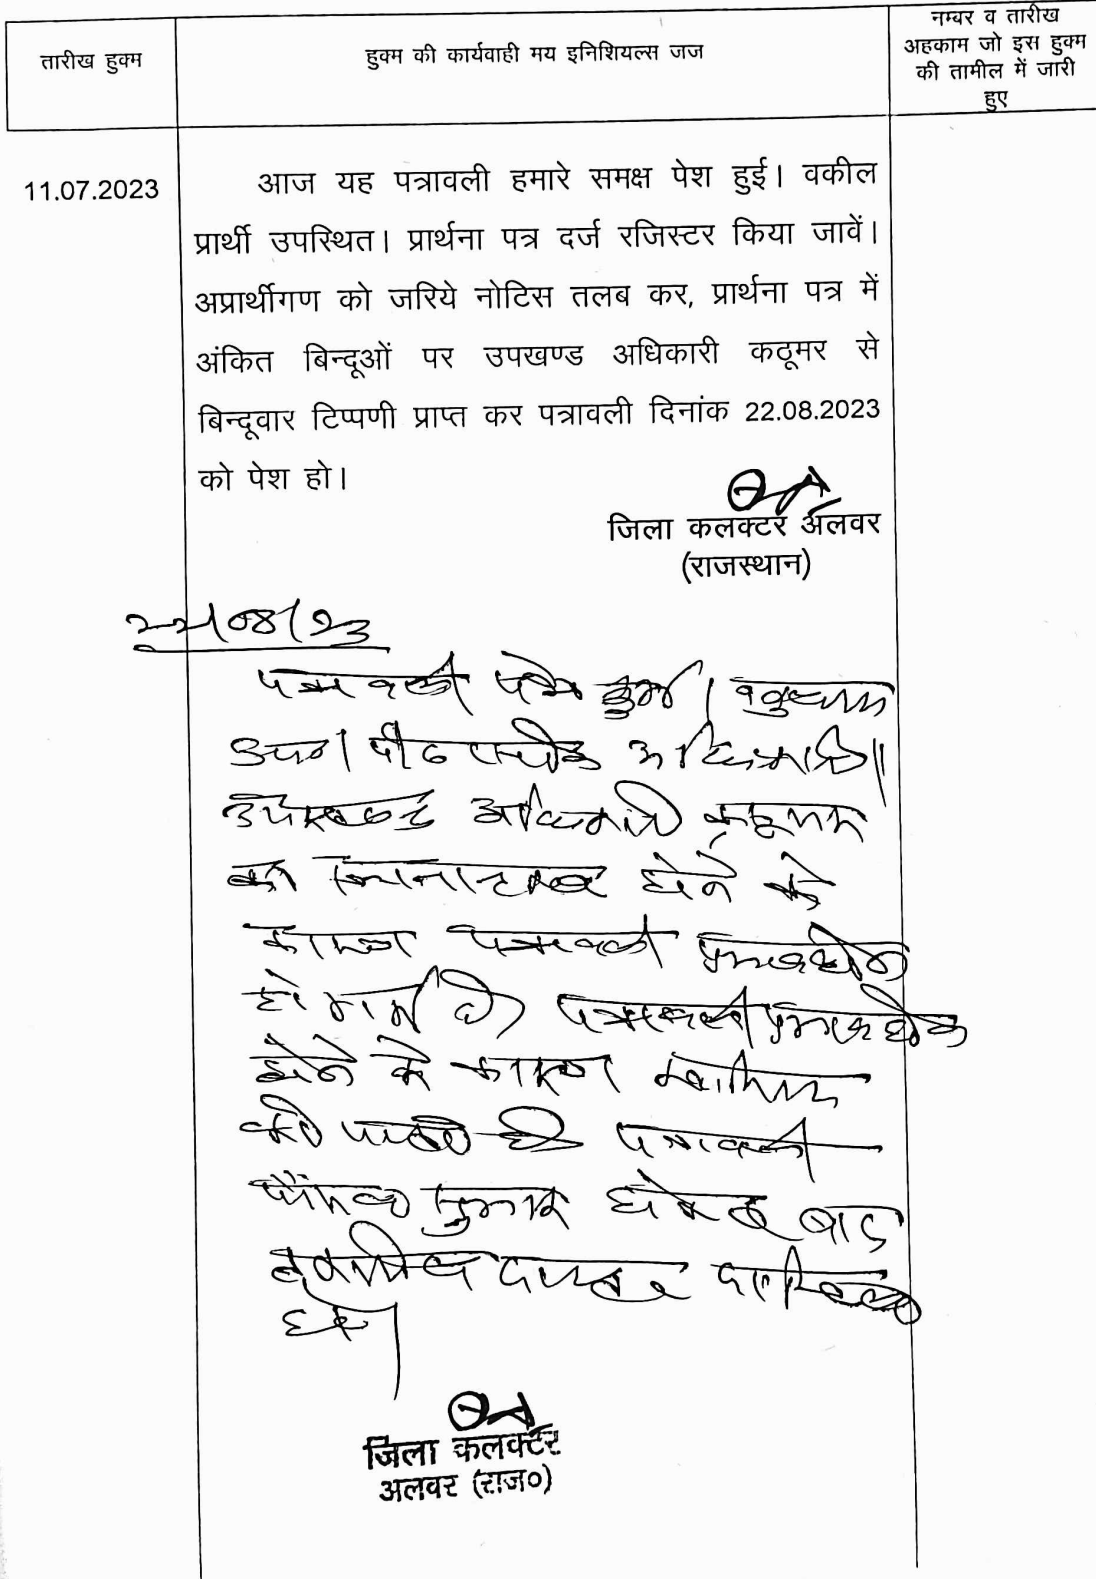 तारीख हुक्म
हुक्म की कार्यवाही मय इनिशियल्स जज
नम्बर व तारीख
अहकाम जो इस हुक्म
की तामील में जारी
हुए
11.07.2023
आज यह पत्रावली हमारे समक्ष पेश हुई। वकील
प्रार्थी उपस्थित। प्रार्थना पत्र दर्ज रजिस्टर किया जावें।
अप्रार्थीगण को जरिये नोटिस तलब कर, प्रार्थना पत्र में
अंकित बिन्दूओं पर उपखण्ड अधिकारी कठूमर से
बिन्दूवार टिप्पणी प्राप्त कर पत्रावली दिनांक 22.08.2023
को पेश हो।
जिला कलक्टर अलवर
(राजस्थान)
22/08/23
पत्रावली पेश हुई।
उपखण्ड अधिकारी कठूमर
का स्थानान्तरण होने के
कारण पत्रावली
हो गई है। पत्रावली
होने के कारण खारिज
की जाती है। पत्रावली
फैसल शुमार होकर बाद
तकमील दाखिल दफ्तर
हो।
जिला कलक्टर
अलवर (राज०)